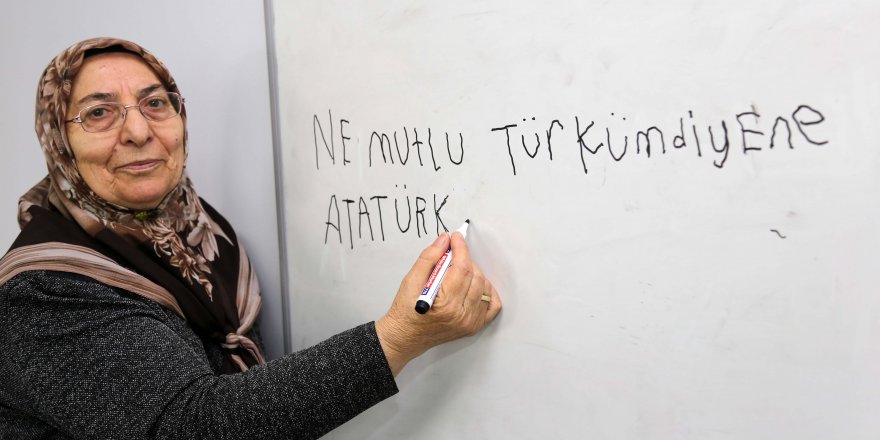 NE mutLu TürKümdiyEne
ATATÜRK